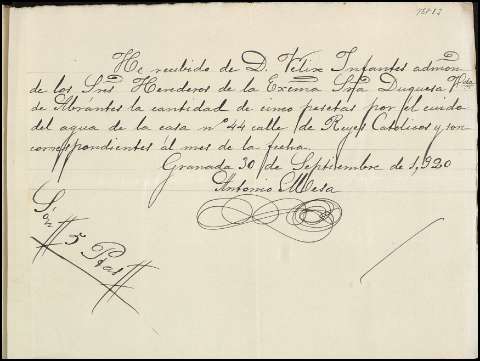 He recibido de D. Felix Infantes admōn
de los Sres Herederos de la Exema Srā Duquesa Vda
de Abrántes la cantidad de cinco pesetas por el cuido
del agua de la casa nº 44 calle de Reyes Católicos y son
correspondientes al mes de la fecha.
Granada 30 de Septiembre de 1,920
Antonio Mesa
Son
# 5 Ptas #